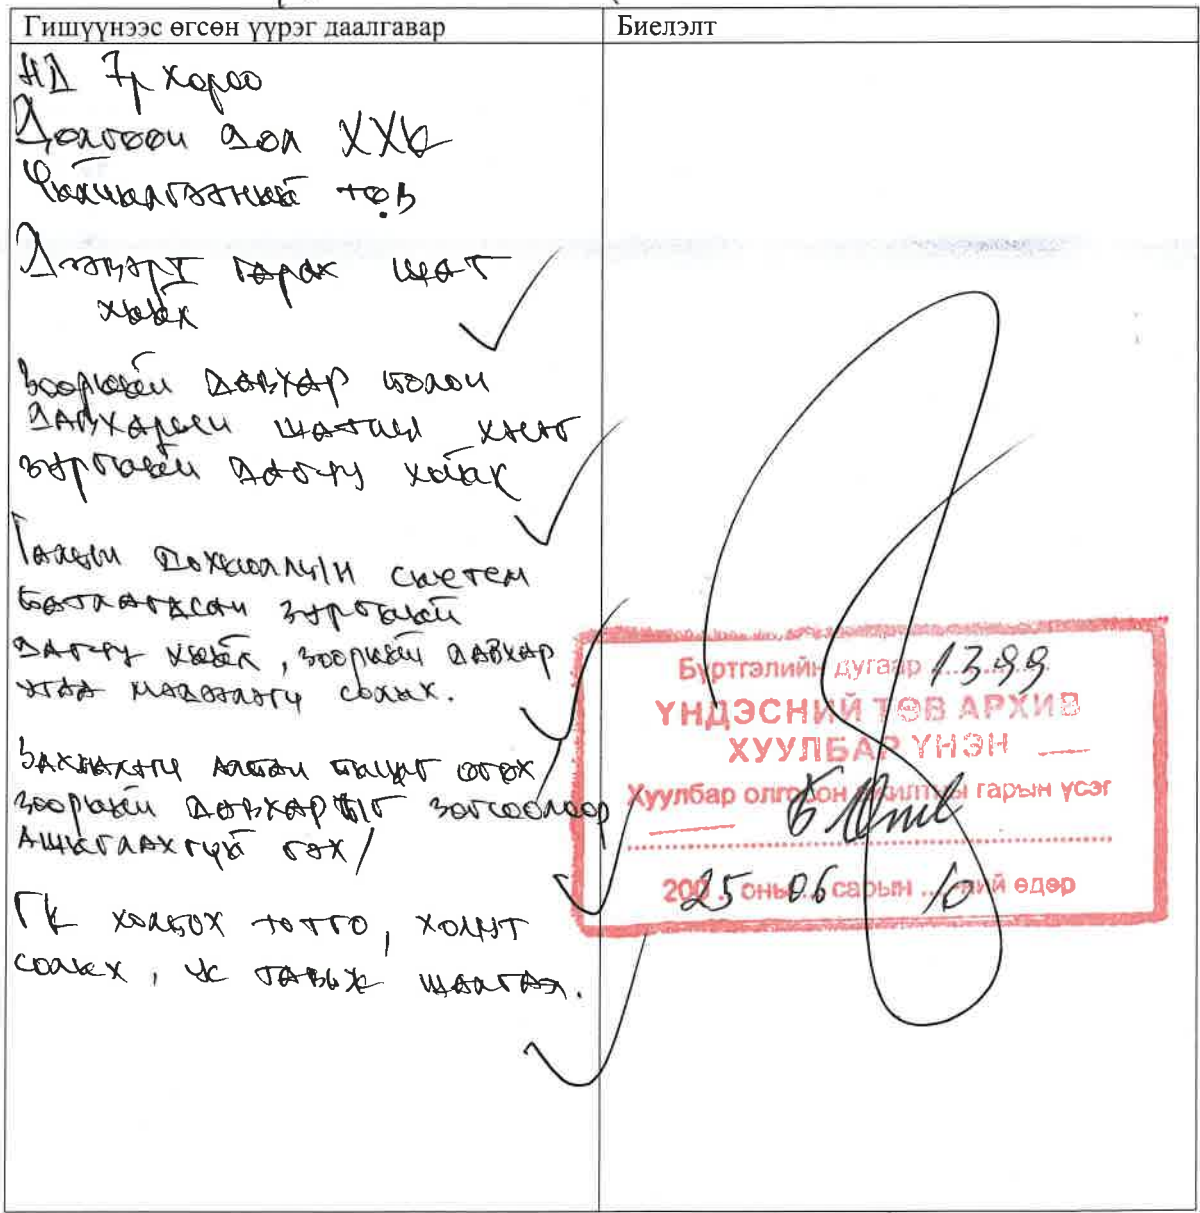 Гишүүнээс өгсөн үүрэг даалгавар
Биелэлт
НД 7р хороо
Долгоон дол ХХК
Үйлчилгээний төв
Дээвэрт гарах шат
хийх
Зоорийн давхар болон
давхарын шатны хэсэг
зургийн дагуу хийх
Галын дохиоллын систем
батлагдсан зургийн
дагуу хийх, зоорийн давхар
утаа мэдээлэгч солих.
Захиалагч албан бичиг өгөх
зоорийн давхарыг зогсоолоор
ашиглахгүй гэх/
ГК холбох тотго, хомут
солих, ус тавьж шалгах.
Бүртгэлийн дугаар 1399
ҮНДЭСНИЙ ТӨВ АРХИВ
ХУУЛБАР ҮНЭН
Хуулбар олгосон ажилтны гарын үсэг
200 25 оны 06 сарын 10 ний өдөр